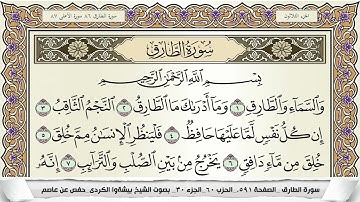 الجزء الثلاثون
سورة الطارق ٨٦ سورة الأعلى ٨٧
سُورَةُ الطَّارِقِ
بِسْمِ اللَّهِ الرَّحْمَٰنِ الرَّحِيمِ
وَالسَّمَاءِ وَالطَّارِقِ ١ وَمَا أَدْرَىٰكَ مَا الطَّارِقُ ٢ النَّجْمُ الثَّاقِبُ ٣
إِن كُلُّ نَفْسٍ لَّمَّا عَلَيْهَا حَافِظٌ ٤ فَلْيَنظُرِ الْإِنسَٰنُ مِمَّ خُلِقَ ٥
خُلِقَ مِن مَّاءٍ دَافِقٍ ٦ يَخْرُجُ مِن بَيْنِ الصُّلْبِ وَالتَّرَائِبِ ٧ إِنَّهُ
سورة الطارق . الصفحة ٥٩١. الحزب ٦٠. الجزء ٣٠. بصوت الشيخ بيشەوا الكردي. حفص عن عاصم